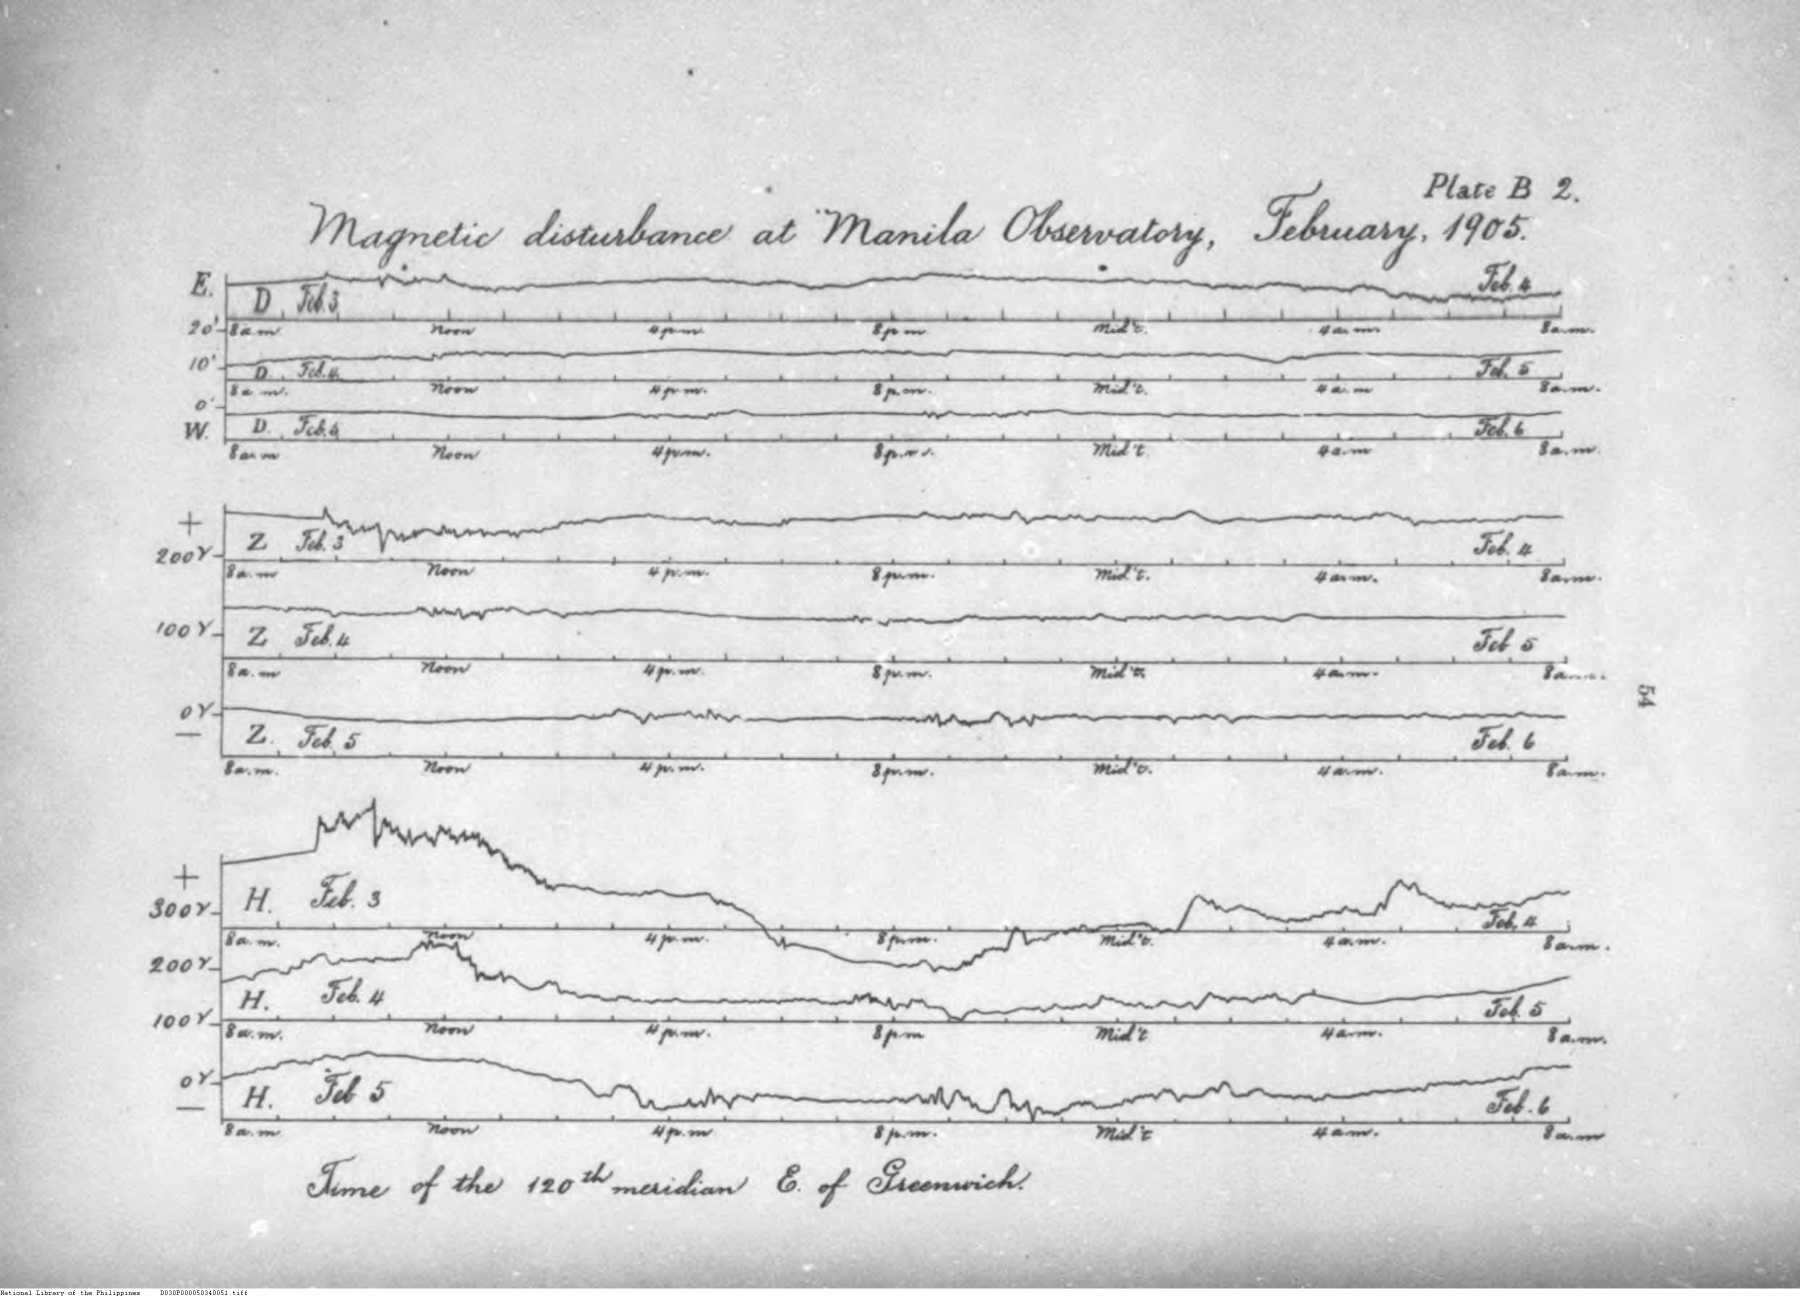 Plate B 2.
Magnetic disturbance at Manila Observatory, February, 1905.
E. D Feb. 3 Feb. 4
20' 8 a.m. Noon 4 p.m. 8 p.m. Mid't. 4 a.m. 8 a.m.
10' D. Feb. 4 Feb. 5
8 a.m. Noon 4 p.m. 8 p.m. Mid't. 4 a.m. 8 a.m.
0'
W. D. Feb. Feb. 6
8 a.m. Noon 4 p.m. 8 p.m. Mid't. 4 a.m. 8 a.m.
+
Z Feb. 3 Feb. 4
200γ 8 a.m. Noon 4 p.m. 8 p.m. Mid't. 4 a.m. 8 a.m.
100γ Z Feb. 4 Feb 5
8 a.m. Noon 4 p.m. 8 p.m. Mid't. 4 a.m. 8 a.m.
54
0γ
— Z. Feb. 5 Feb. 6
8 a.m. Noon 4 p.m. 8 p.m. Mid't. 4 a.m. 8 a.m.
+
300γ H. Feb. 3 Feb. 4
8 a.m. Noon 4 p.m. 8 p.m. Mid't. 4 a.m. 8 a.m.
200γ
H. Feb. 4 Feb. 5
100γ 8 a.m. Noon 4 p.m. 8 p.m Mid't 4 a.m. 8 a.m.
0γ
— H. Feb 5 Feb. 6
8 a.m. Noon 4 p.m 8 p.m. Mid't 4 a.m. 8 a.m
Time of the 120th meridian E. of Greenwich.
National Library of the Philippines D030P000050340051.tiff